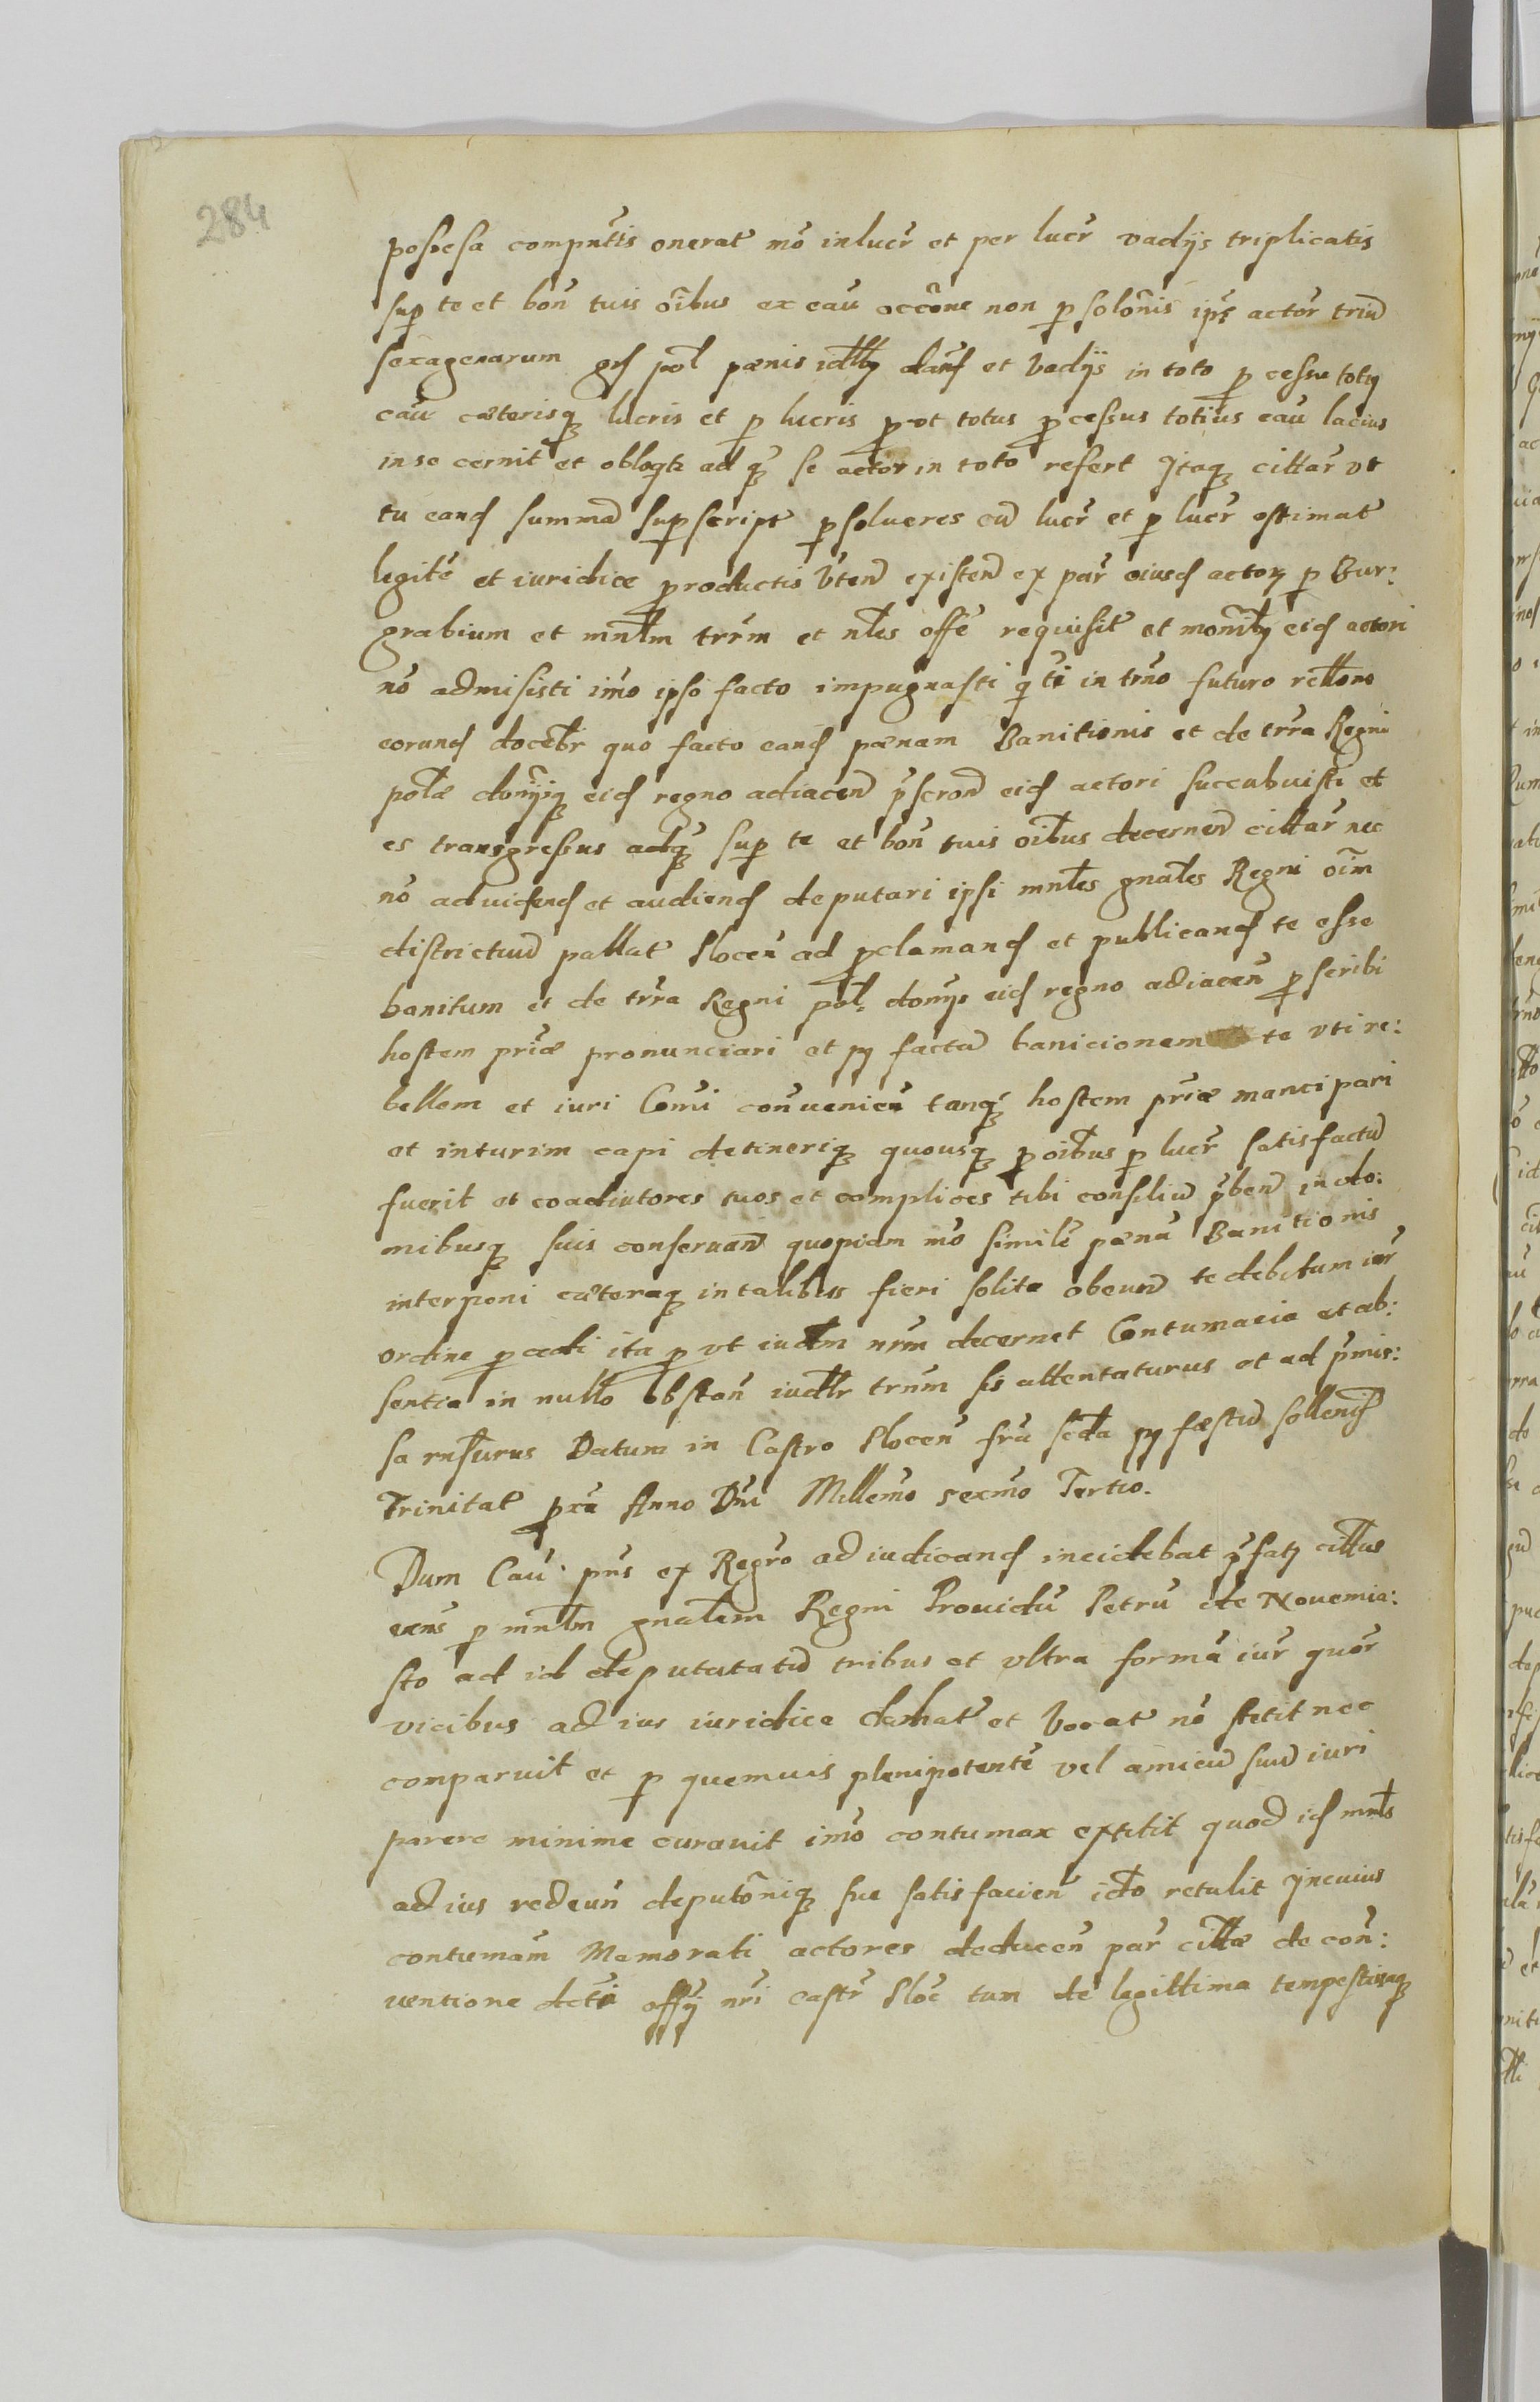 284
possessa compñtis onerať mo in lucř et per lucř vadijs triplicatis
sup te et boñ tuis oĩbus ex cau occõne non psolonis ips actor triũ
sexagenarum pol pœnis et vadijs in toto pcessu
cau cæterisq lucris et p lucris prot totus pcessus totius cau lacius
in se cernit et ad q se actor in toto refert Itaq cittar vt
tu eand summã supscript psolueres cũ lucř et p lucř estimať
legite et iuridice productis existen ex par eiusd actor p Bur:
grabium et mnłm trrm et nłes offe requisiť et eid actori
no admisisti imo ipso facto impugnasti in trno futuro rełłone
eorund quo facto eand pœnam Banitionis et de trra Regni
polæ eid regno adiacen pscron eid actori succubuisti et
es transgressus adq sup te et boñ tuis oĩbus decernen cittar nec
no ad videnď et audienď deputari ipsi mnłes gnałes Regni oĩm
districtuũ pallať Plocen ad pclamanď et publicanď te esse
banitum et de trra Regni pol. domijs eid regno adiacen pscribi
hostem priæ pronunciari et p9 factã banicionem te vti re:
bellem et iuri Comi conueniri tanq hostem priæ mancipari
et in turim capi detineriq quousq p oĩbus p lucř satisfactũ
fuerit et coadiutores tuos et complices tibi consiliũ pben in do:
mibusq suis conseruan quopiam mo simile pœna Banitionis
interponi cæteraq in talibus fieri solita obeund te debitum iur
ordine pcedi ita p vt iudm nrm decernet Contumacia et ab:
sentia in nullo obstan iudłr trnm sis attentaturus et ad pmis:
sa rnsurus Datum in Castro Plocen fra scda p9 fæstũ sollenis
Trinitať pxa Anno Dni Millemo sexmo Tertio.
Dum Cau pns ex Regro ad iudicanď incidebat pfať cittus
exns p mnłm gnałem Regni Prouidũ Petrũ de Nouemia:
sto ad id deputatatũ tribus et vltra formã iur quor
vicibus ad ius iuridice clamať et vocať no stetit nec
comparuit et p quemuis plenipotente vel amicũ suũ iuri
parere minime curauit imo contumax extitit quod id mnłs
ad ius redeun deputõniq suæ satisfacien icto retulit In cuius
contumam Memorati actores deducen par cittæ de con:
uentione offij nri castr Ploc tum de legittima tempestiuaq